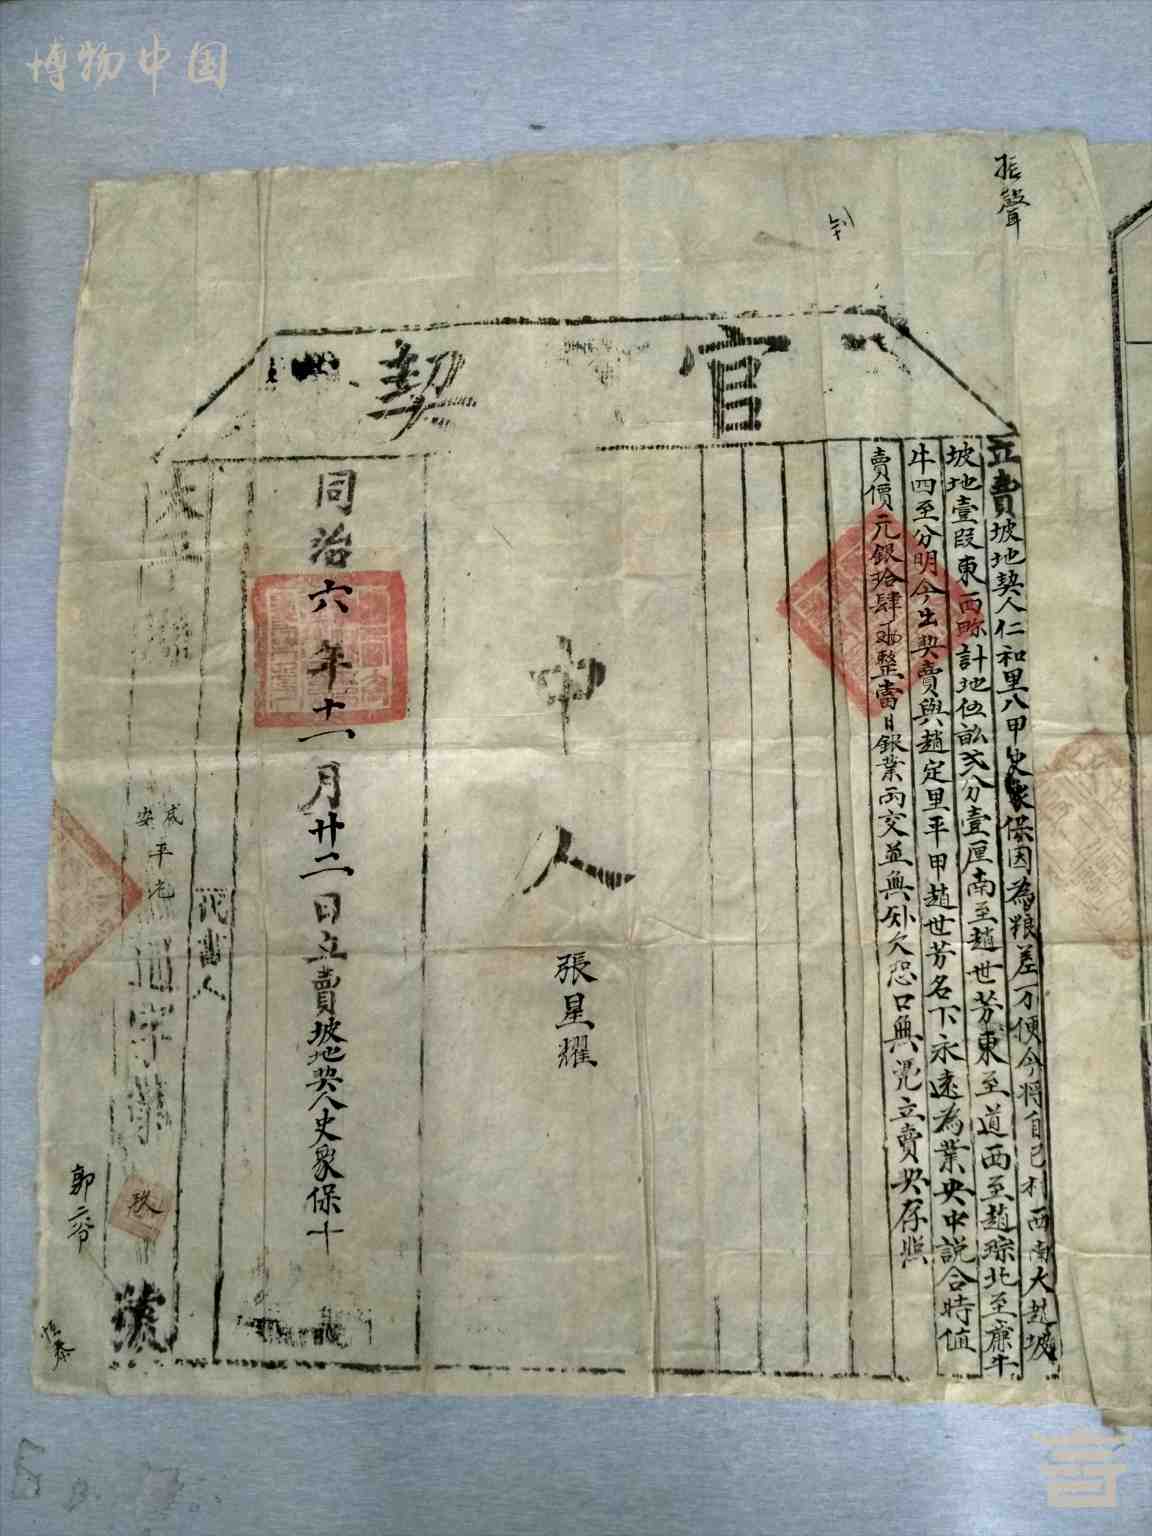 博物中国
振聲
官契
立賣坡地契人仁和里八甲史象保因為粮差不便今將自己村西南大赵坡
坡地壹段東西畛計地伍畝弍分壹厘南至趙世芳東至道西至趙琮北至廉牛
牛四至分明今出契賣與趙定里平甲趙世芳名下永遠為業央中説合時值
賣價元銀拾肆両整當日銀業両交並無外欠恐口無凴立賣契存照
中人
張星耀
同治六年十一月廿二日立賣坡地契人史象保十
代書人
咸平
安
號
郭二爷